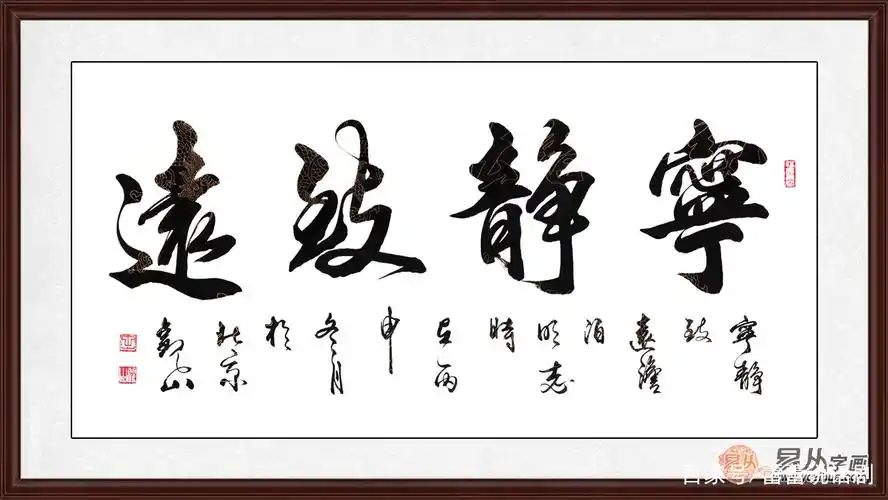 寧靜致遠
寧靜
致
遠澹
泊
明志
時
在丙
申
冬月
於
北京
易从字画
百家号/